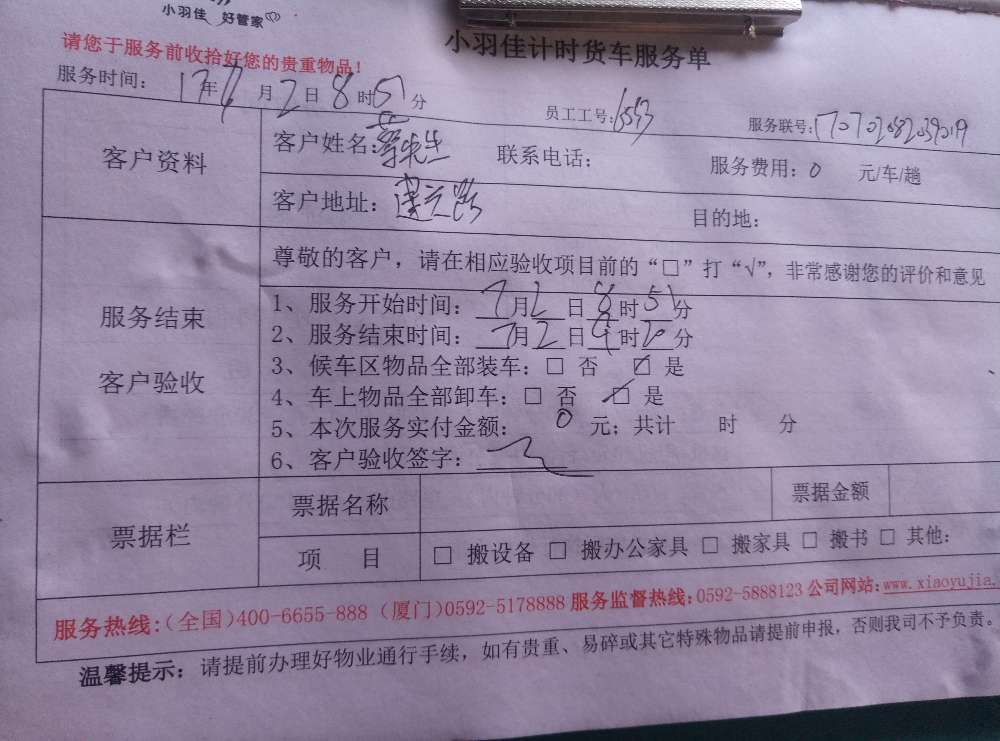 小羽佳 好管家
小羽佳计时货车服务单
请您于服务前收拾好您的贵重物品！
服务时间： 17年7月2日8时51分
员工工号： 服务联号：170702082039019
客户资料
客户姓名：蔡先生 联系电话： 服务费用：0 元/车/趟
客户地址：莲云路 目的地：
服务结束
客户验收
尊敬的客户，请在相应验收项目前的“□”打“√”，非常感谢您的评价和意见
1、服务开始时间：7月2日8时51分
2、服务结束时间：7月2日9时20分
3、候车区物品全部装车：□ 否 ☑ 是
4、车上物品全部卸车：□ 否 ☑ 是
5、本次服务实付金额： 0 元；共计 时 分
6、客户验收签字：
票据栏
票据名称 票据金额
项 目 □ 搬设备 □ 搬办公家具 □ 搬家具 □ 搬书 □ 其他：
服务热线：（全国）400-6655-888（厦门）0592-5178888 服务监督热线：0592-5888123 公司网站：www.xiaoyujia.
温馨提示：请提前办理好物业通行手续，如有贵重、易碎或其它特殊物品请提前申报，否则我司不予负责。